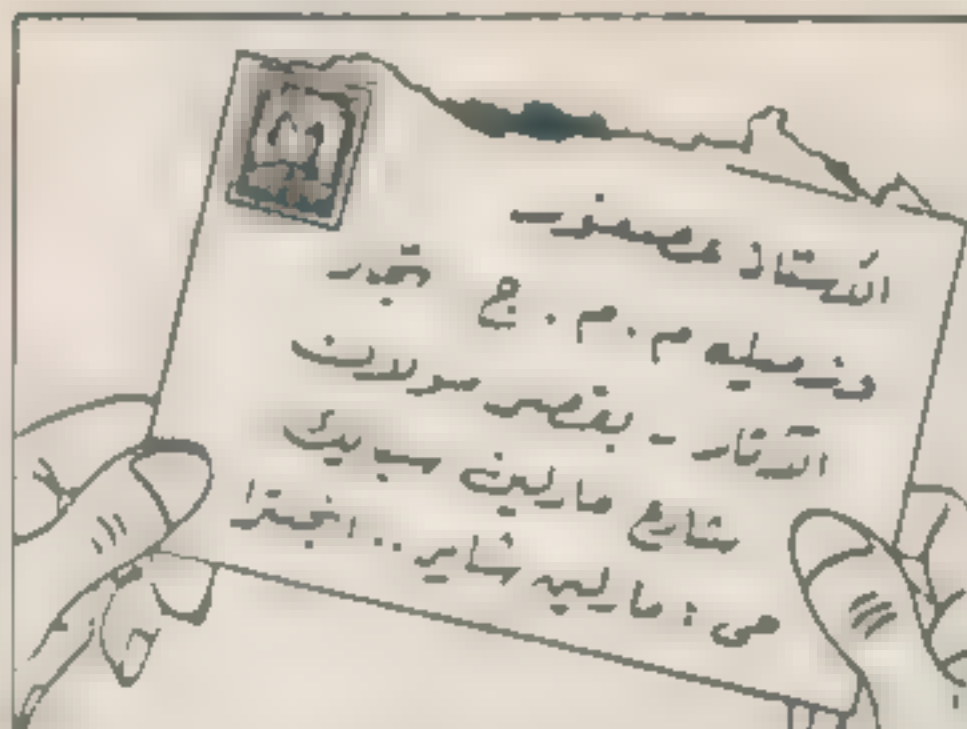 الأستاذ عصفور
وزميله م . م . ج تجدر
الآثار - بقصر مورلان
شارع مارلين سبايك
هى : ماليه شاير .. انجلترا